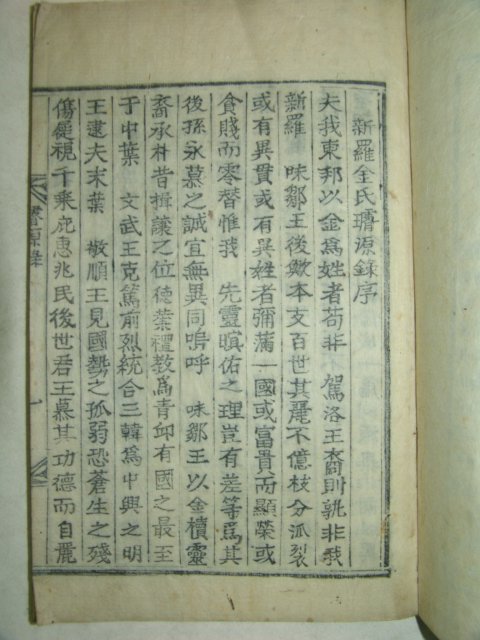 新羅金氏璿源錄序
夫我東邦以金爲姓者苟非 駕洛王裔則孰非我
新羅 味鄒王後歟本支百世其麗不億枝分派裂
或有異貫或有異姓者彌蒲一國或富貴而顯榮或
貪賤而零替惟我 先靈瞋佑之理豈有差等爲其
後孫永慕之誠宜無異同嗚呼 味鄒王以金櫝靈
裔承朴昔揖讓之位德業禮敎爲青丘有國之最至
于中葉 文武王克篤前烈統合三韓爲中興之明
王逮夫末葉 敬順王見國勢之孤弱恐蒼生之殘
傷蹝視千乘庇惠兆民後世君王慕其功德而自麗
璿源錄
一